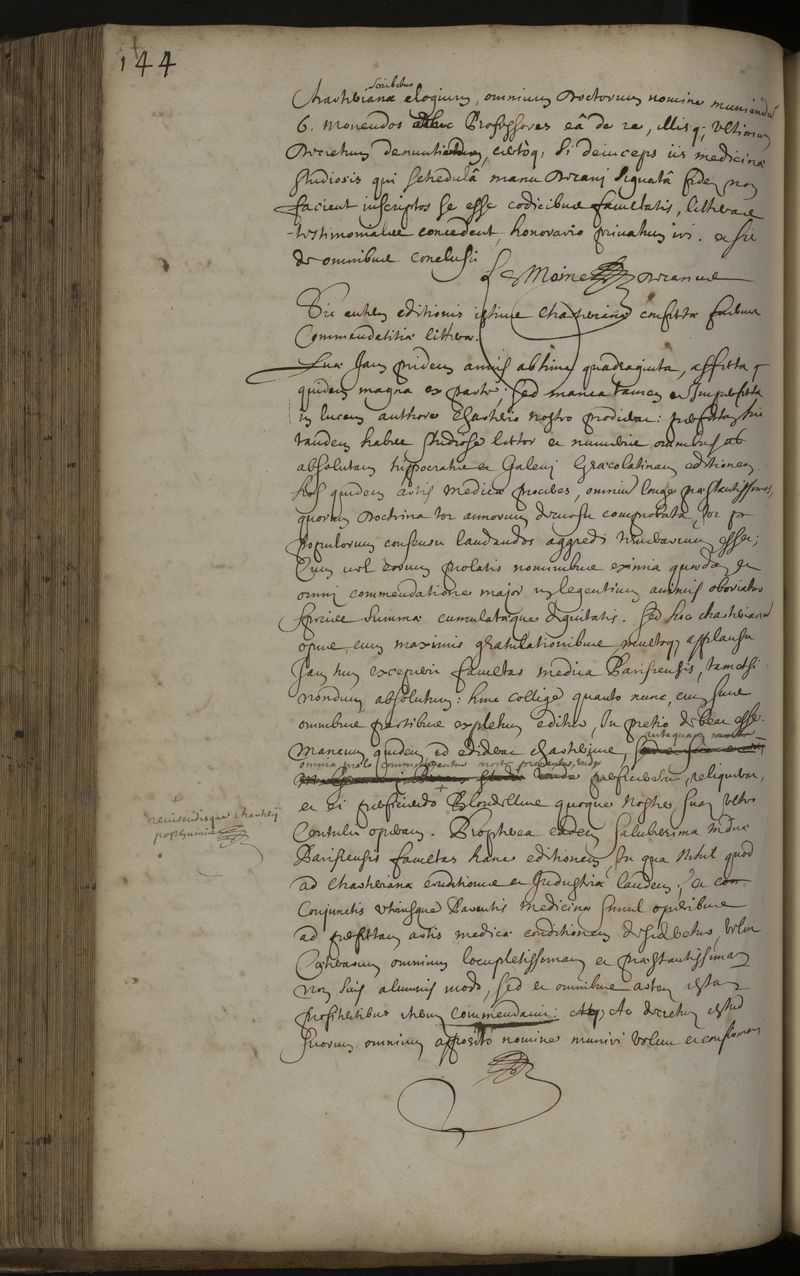 144
scribetur
Charteriana elogium, omnium Doctorum nomine muniendum
6. Monendos adhuc Professores eâ de re, illisq; ultimum
Decretum denuntiandum, certóq; si deinceps iis medicinæ
studiosis qui schedulâ manu Decani signatâ fidem non
facient inscriptos se esse codicibus facultatis, litteras
testimoniales concedent, honorario privatum iri. et sic
de omnibus conclusit
Le Moine Decanus
Sic autem editionis istius Charterianæ confectæ fuerunt
Commendatitiæ litteræ.
Quæ Jam pridem annis abhinc quadraginta, affecta
quidem magna ex parte, sed manca tamen et imperfecta
in lucem authore Charterio nostro prodierat: perfectam hic
tandem habes studiose lector et numeris omnibus
absolutam hippocratis et Galeni Græcolatinam editionem.
hos quidem artis medicæ proceres, omnium longe præstantissimos,
quorum doctrina tot annorum decursu comprobata, tot
populorum consensu laudandos aggredi
Cum vel eorum prolatis nominibus eximia quædam et
omni commendatione major legentium animis oboriatur
species summæ cumulatæque dignitatis. Sed hoc Charterianum
opus, cum maximis gratulationibus multoq; applausu
Jam tum exceperit facultas medica Parisiensis, tametsi
nondum absolutum: hinc collige quanto nunc, cum suis
omnibus partibus expletum editur, in pretio debeat esse.
antequam
Mancum quidem id ediderat Charterius,
omnia prælo
perficiendum reliquerat,
et ei perficiendo Blondellus quoque noster suam
+
revisendisque Charterij
posthumis
Contulit operam. Propterea eadem saluberrima medicinæ
Parisiensis facultas hanc editionem, in qua nihil quod
ad Charterianæ eruditionis et industriæ laudem, et
Conjunctis utriusque Parentis medicinæ simul operibus
ad perfectam artis medicæ eruditionem desideretur, velut
Cæterarum omnium locupletissimam et præstantissimam
non suis alumnis modo, sed et omnibus artem istam
profitentibus commendavit: Atq; decretum istud
suorum omnium apposito nomine muniri voluit et confirmari